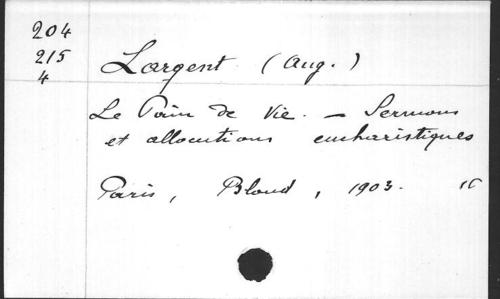 204
215
4
Largent (Aug.)
Le Pain de Vie. — Sermons
et allocutions eucharistiques
Paris, Bloud, 1903.